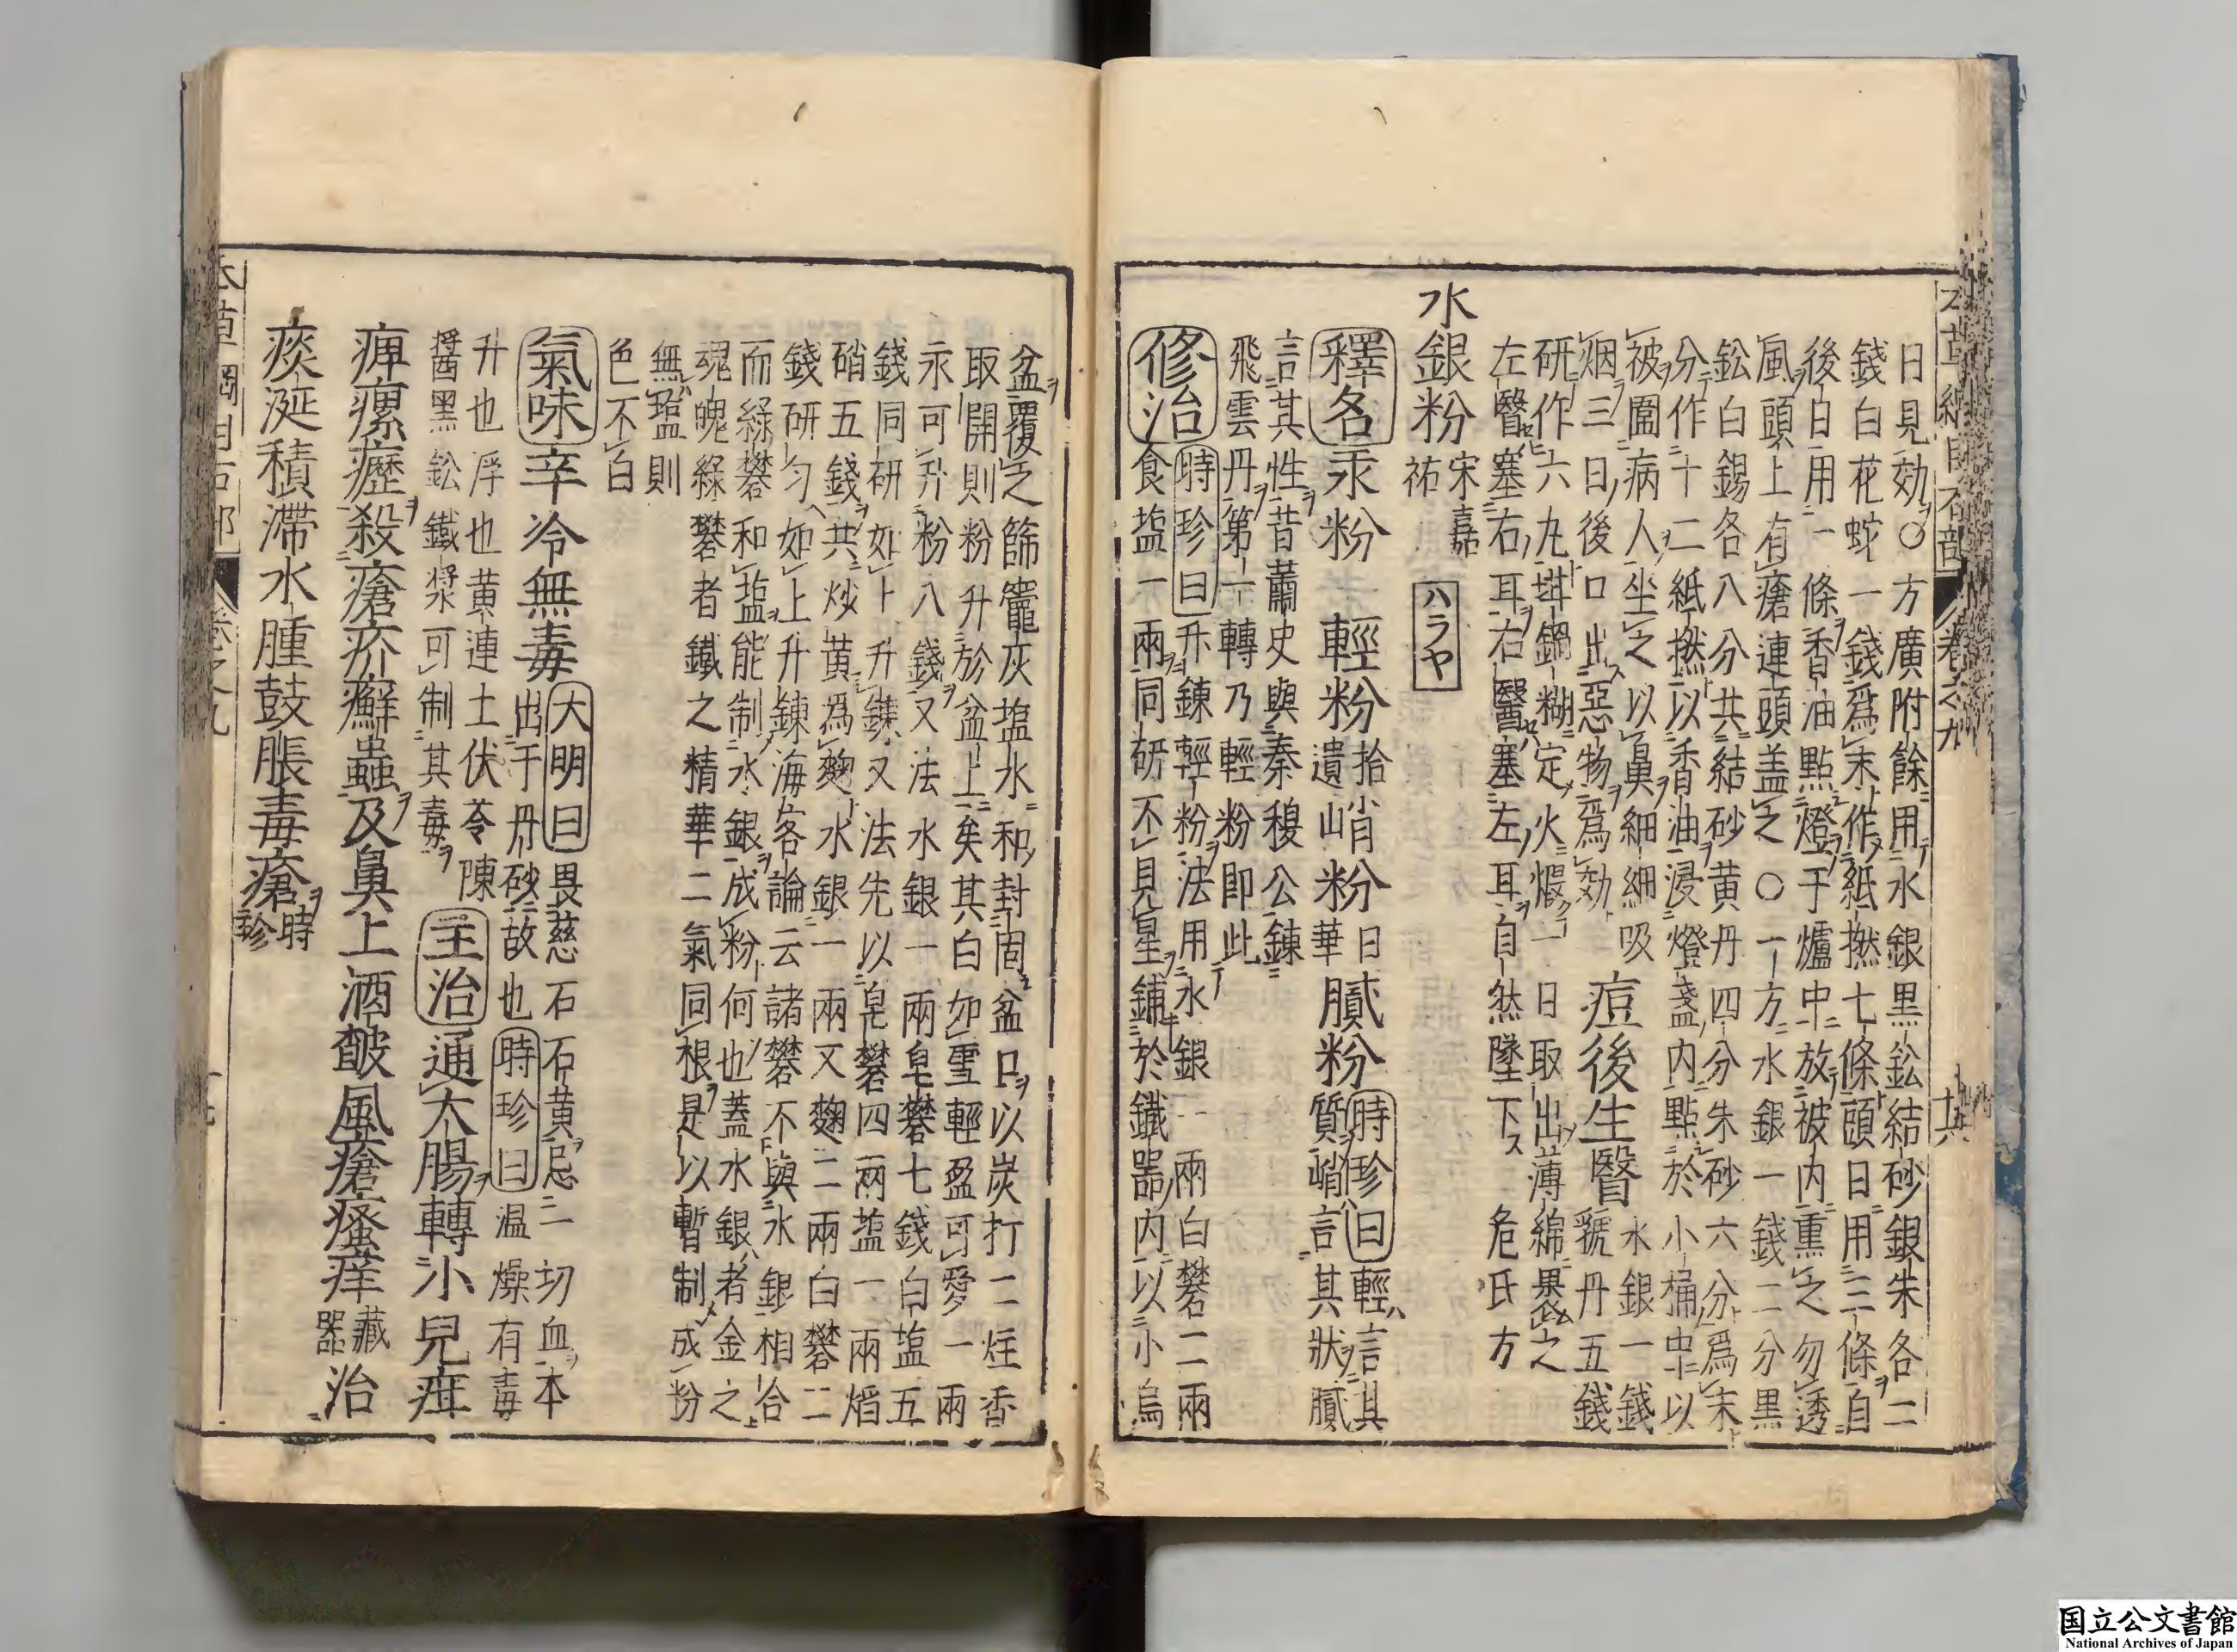 日見効○方廣附餘用水銀黒鈆結砂銀朱各二
錢白花蛇一錢爲末作紙撚七條頭日用三條自
後日用一條香油點燈于爐中放被内熏之勿透
風頭上有瘡連頭盖之○一方水銀一錢二分黒
鈆白錫各八分共結砂黄丹四分朱砂六分爲末
分作十二紙撚以香油浸燈盞内點於小桶中以
被圍病人坐之以鼻細細吸
烟三日後口出惡物爲効
痘後生瞖
水銀一錢
虢丹五錢
研作六丸坩鍋糊定火煆一日取出薄綿裹之
左瞖塞右耳右瞖塞左耳自然墜下
危氏方
水銀粉
宋嘉
祐
ハラヤ
釋名
汞粉
輕粉
拾
遺
峭粉
日
華
膩粉
時珍曰
輕言其
質峭言其狀膩
言其性昔蕭史與秦穆公錬
飛雲丹第一轉乃輕粉即此
修治
時珍曰
升錬輕粉法用水銀一兩白礬二兩
食塩一兩同研不見星鋪於鐵器内以小烏
盆覆之篩竈灰塩水和封固盆口以炭打二炷香
取開則粉升於盆上矣其白如雪輕盈可愛一兩
汞可升粉八錢又法水銀一兩皂礬七錢白塩五
錢同研如上升錬又法先以皂礬四兩塩一兩熖
硝五錢共炒黄爲麴水銀一兩又麴二兩白礬二
錢研匀如上升錬海客論云諸礬不與水銀相合
而緑礬和塩能制水銀成粉何也蓋水銀者金之
魂魄緑礬者鐵之精華二氣同根是以暫制成粉
無塩則
色不白
氣味
辛冷無毒
大明曰
畏慈石石黄忌一切血本
出于丹砂故也
時珍曰
温燥有毒
升也浮也黄連土伏苓陳
醬黒鈆鐵漿可制其毒
主治
通大腸轉小兒疳
痺瘰癧殺瘡疥癬蟲及鼻上酒皶風瘡瘙痒
藏
器
治
痰涎積滯水腫鼓脹毒瘡
時
珍
国立公文書館
National Archives of Japan